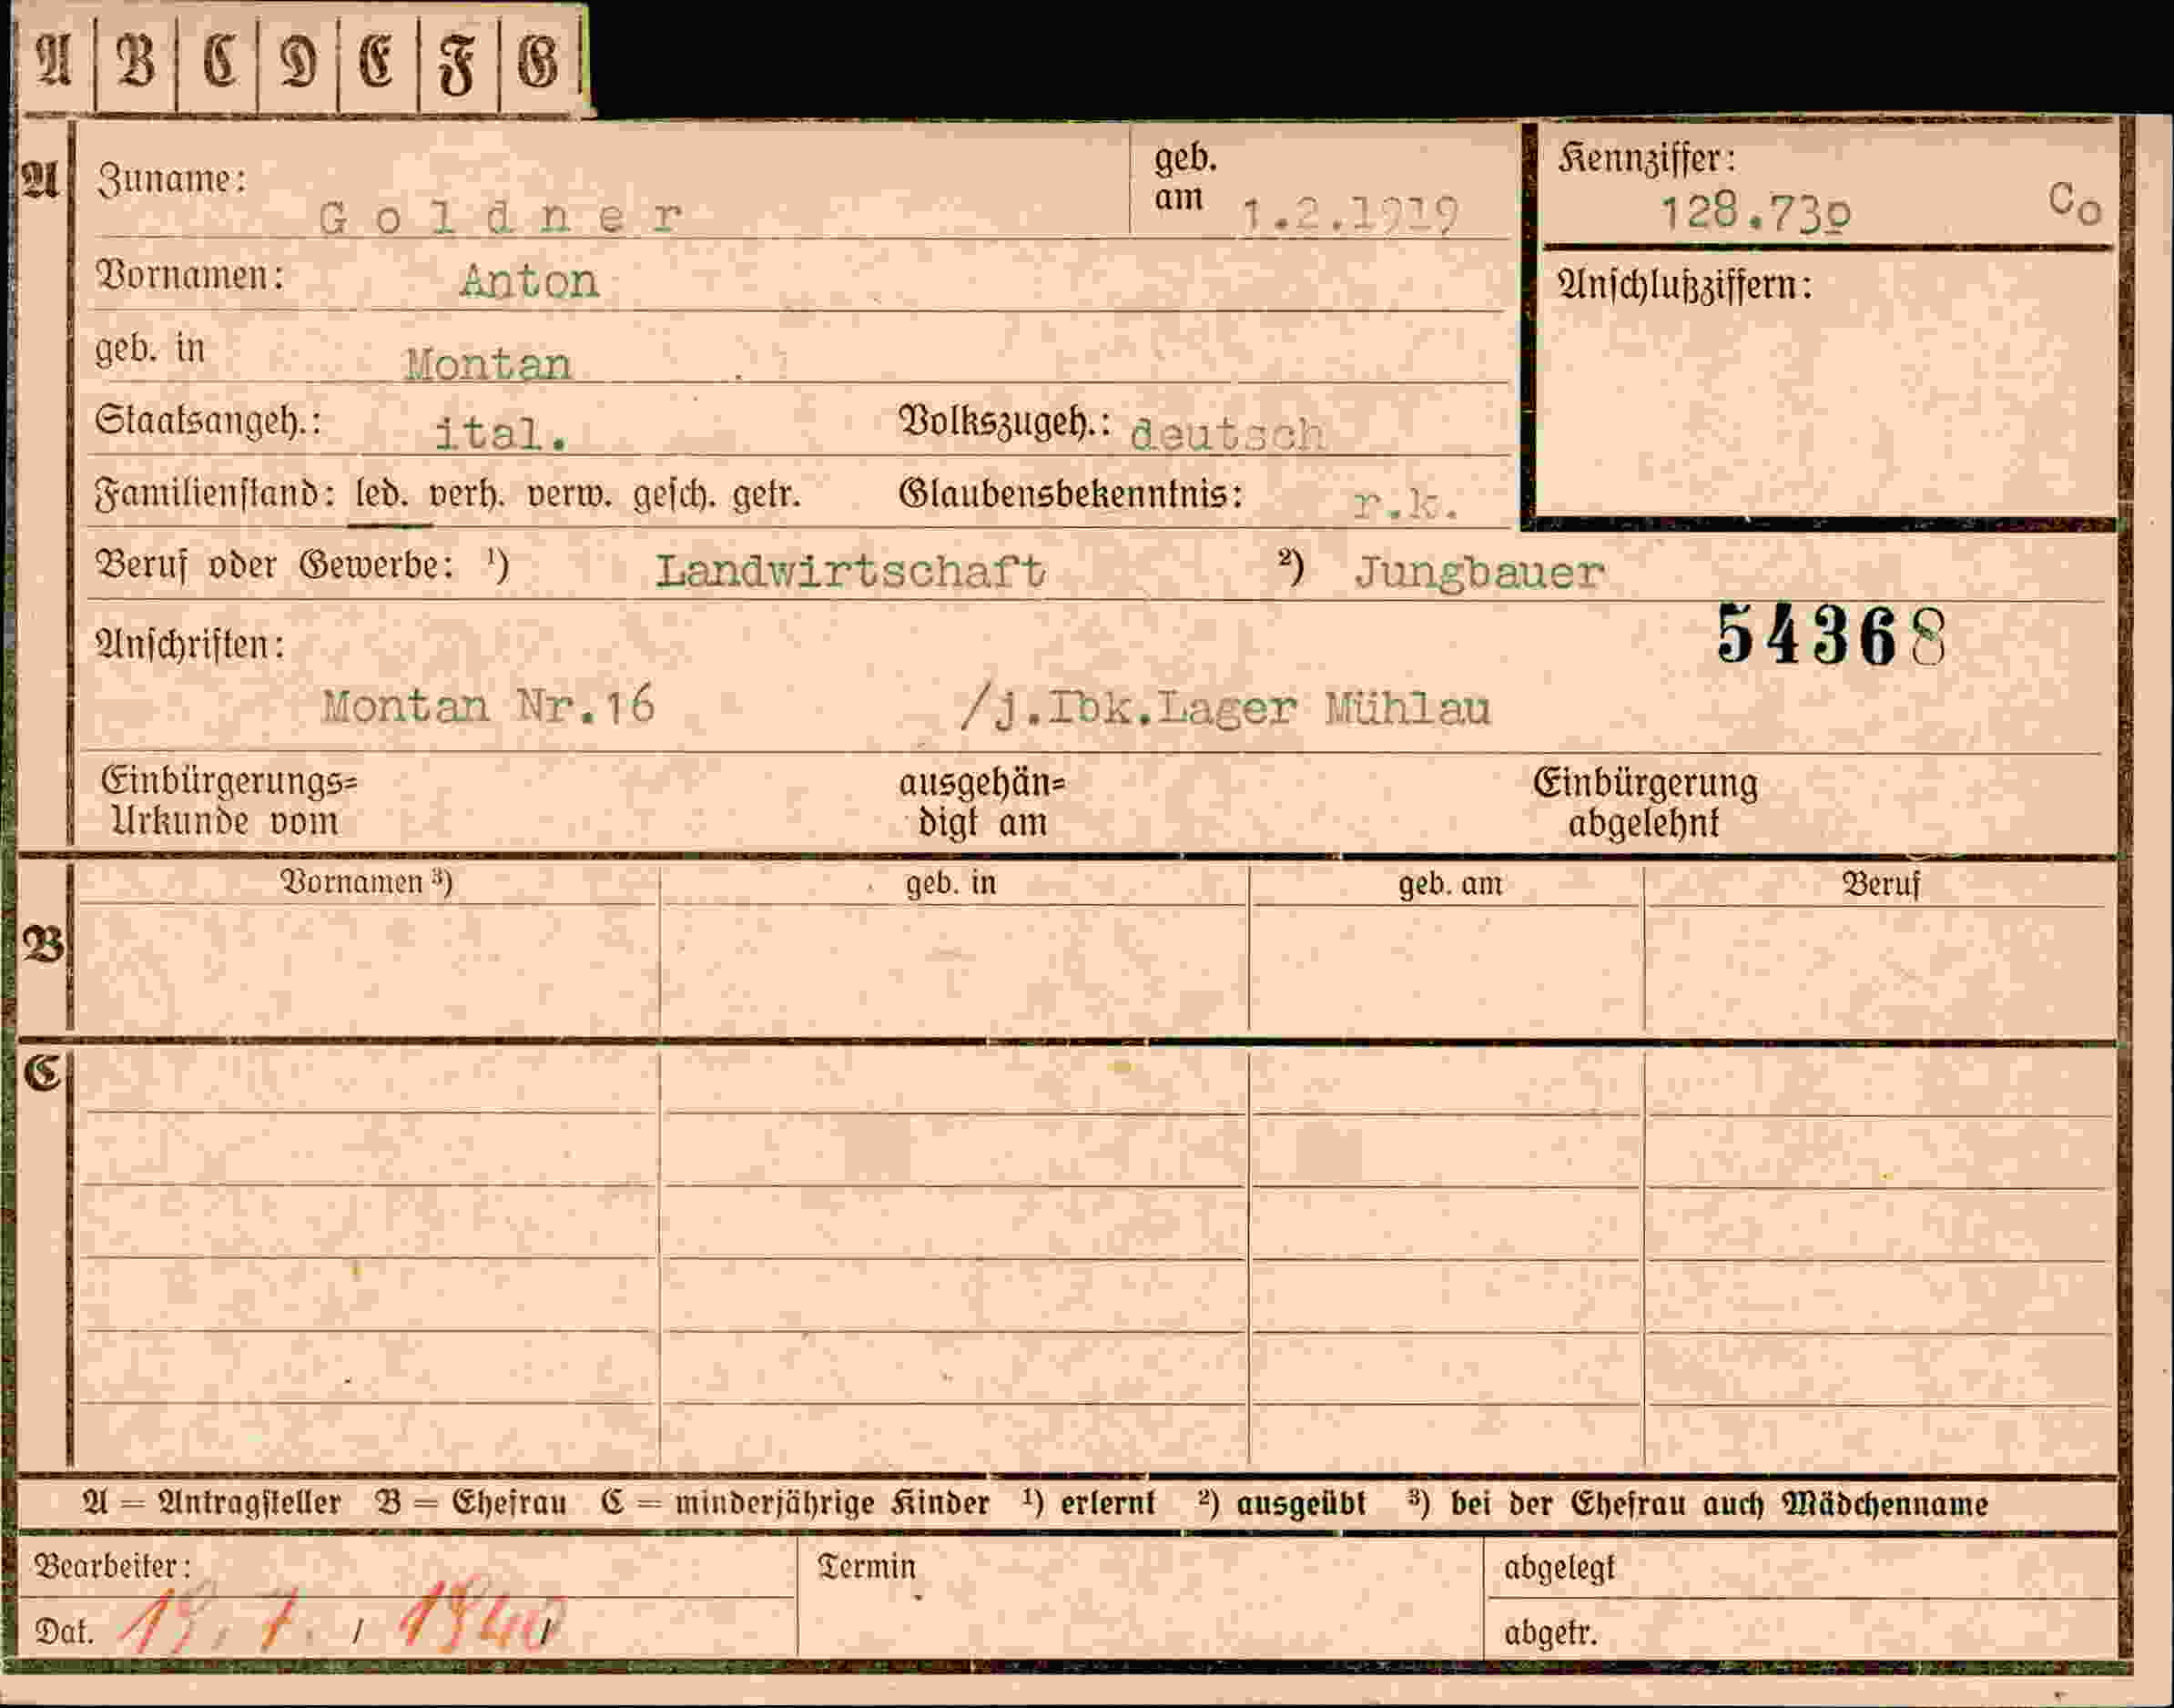 A B C D E F G
A Zuname: Goldner geb. am 1.2.1919 Kennziffer: 128.730 Co
Vornamen: Anton Anschlußziffern:
geb. in Montan
Staatsangeh.: ital. Volkszugeh.: deutsch
Familienstand: led. verh. verw. gesch. getr. Glaubensbekenntnis: r.k.
Beruf oder Gewerbe: ¹) Landwirtschaft ²) Jungbauer
54368
Anschriften:
Montan Nr.16 /j.Ibk.Lager Mühlau
Einbürgerungs= ausgehän= Einbürgerung
Urkunde vom digt am abgelehnt
Vornamen ³) geb. in geb. am Beruf
B
C
A = Antragsteller B = Ehefrau C = minderjährige Kinder ¹) erlernt ²) ausgeübt ³) bei der Ehefrau auch Mädchenname
Bearbeiter: Termin abgelegt
Dat. / 1940 abgetr.